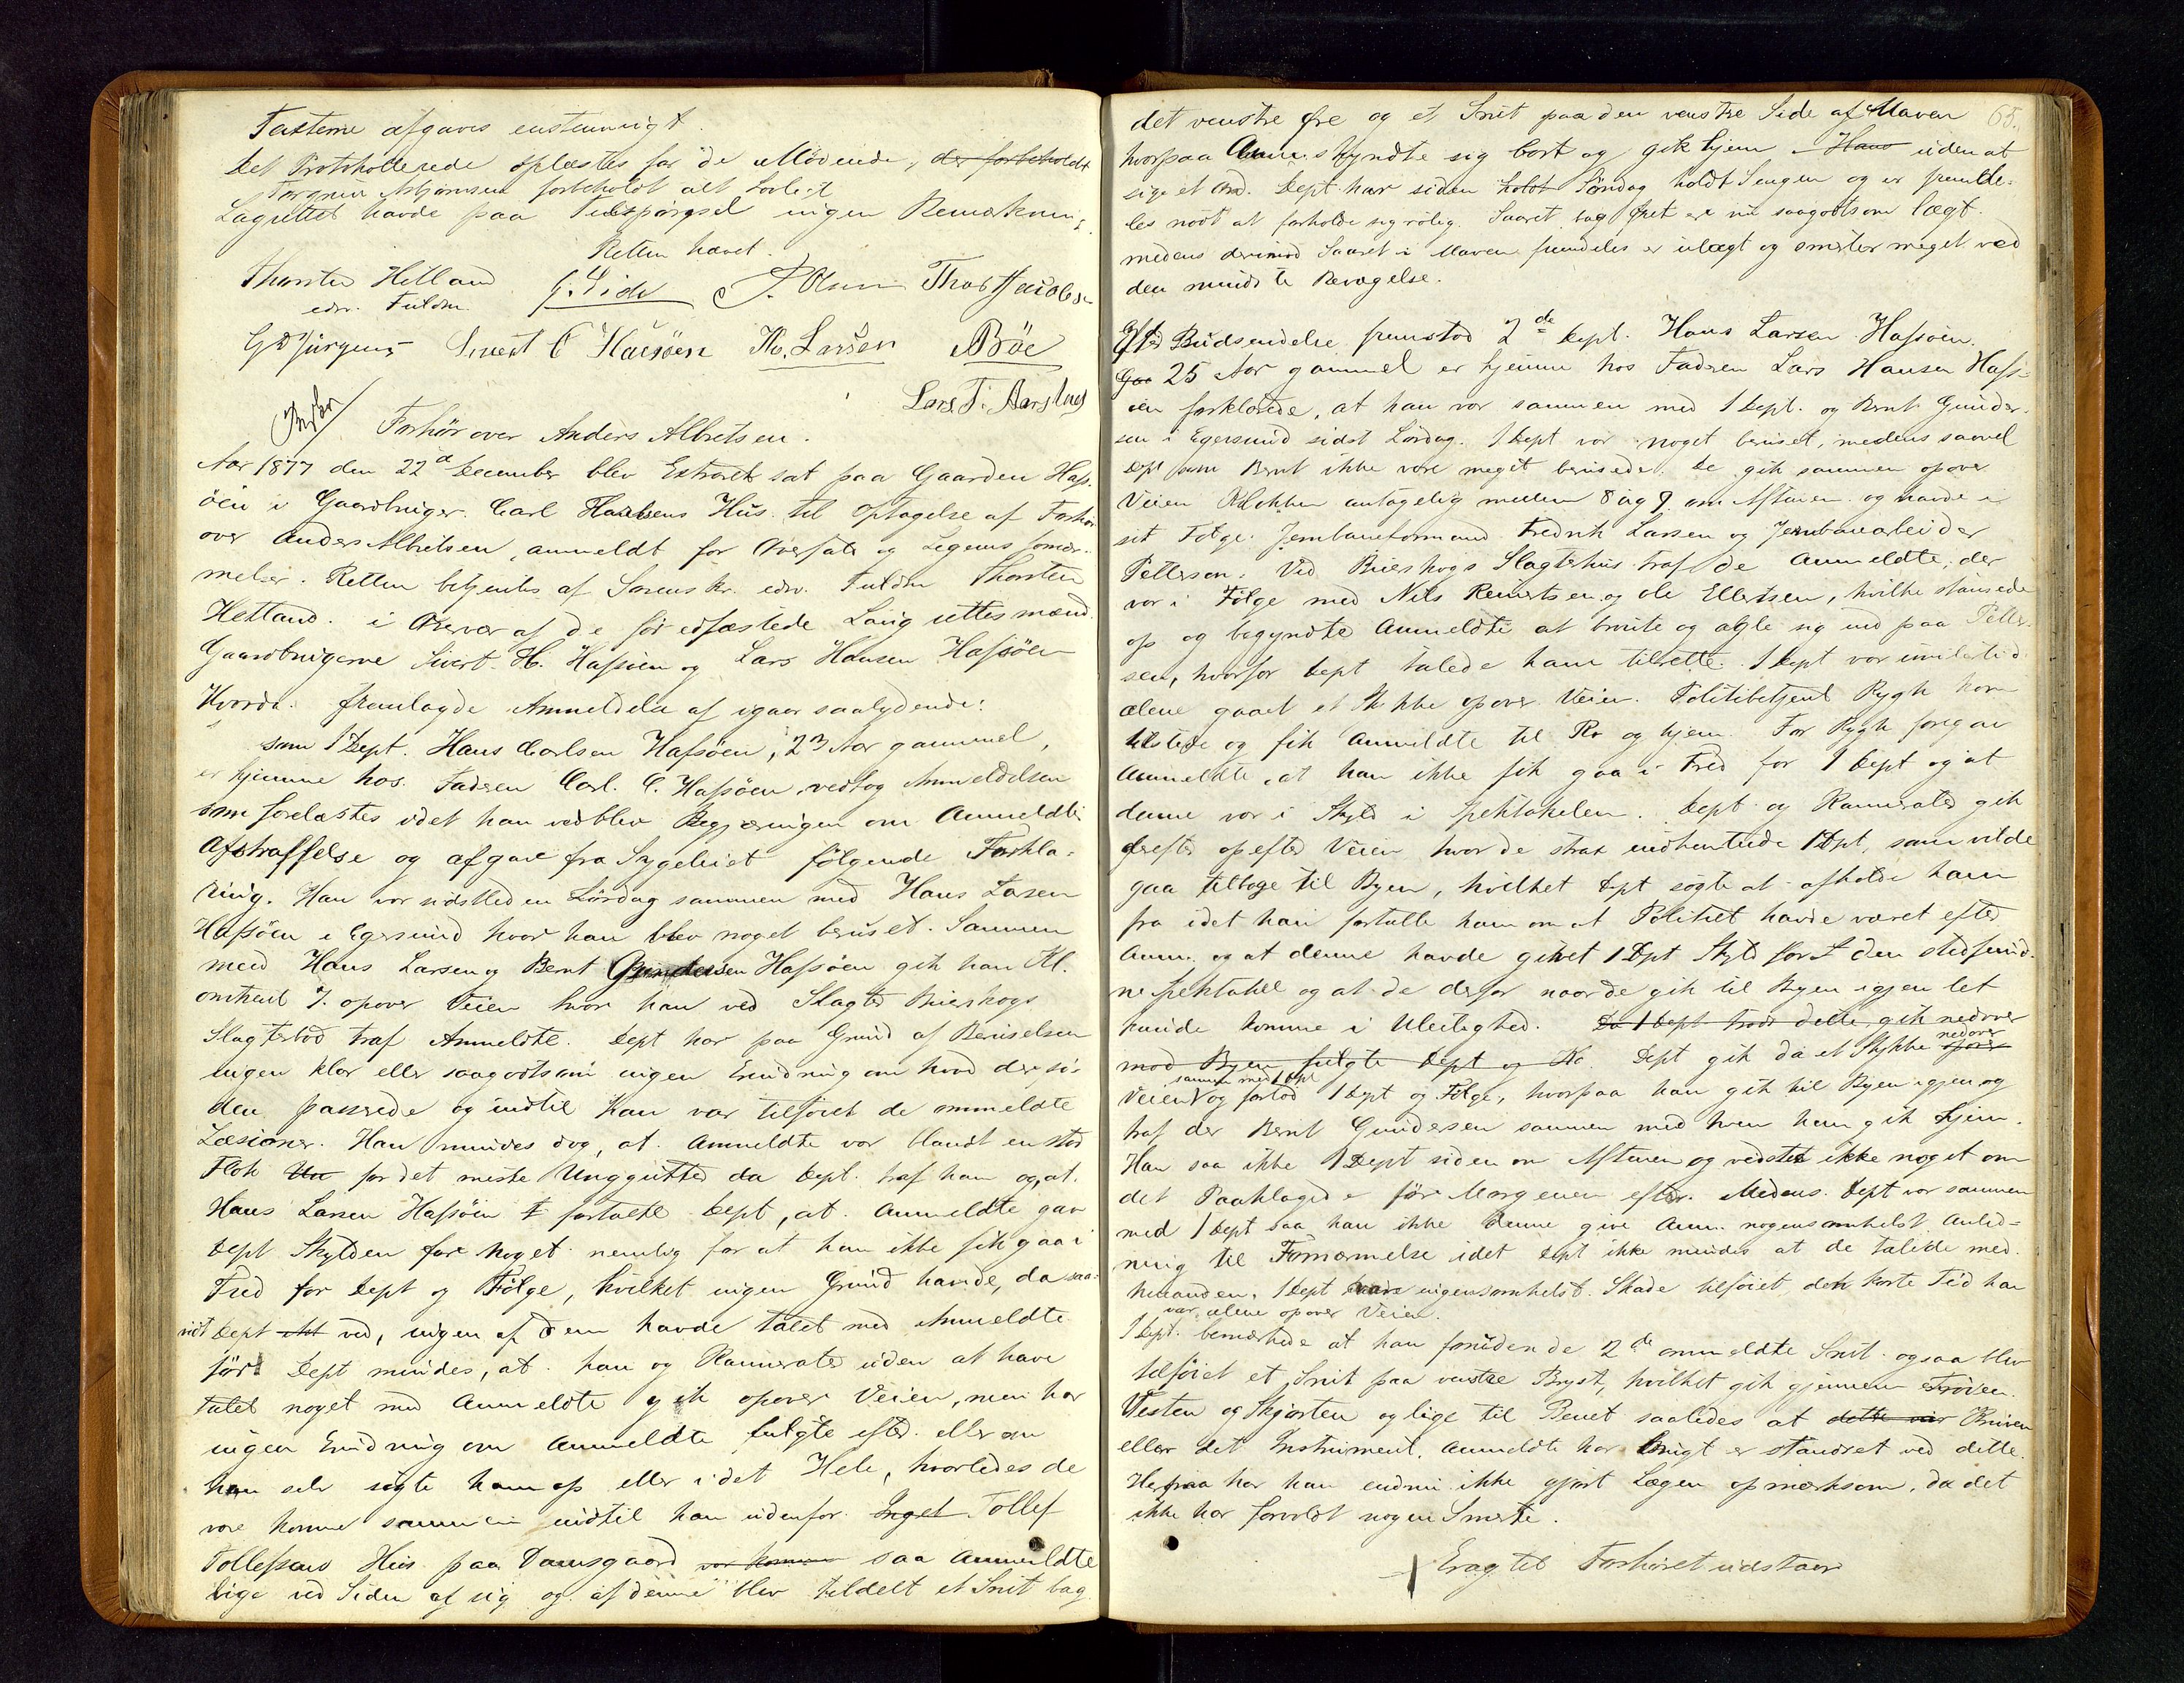 Taxterne afgaves enstemmigt.
Det Protokollerede oplæstes for de Mödende, der forbeholdt
Asbjörnsen forbeholdt alt Lovligt
Lagrettet havde paa Tilspörgsel ingen Bemærkning
Retten hævet.
Thorsten Hetland G. Eide J. Olsen Thor Jacobsen
edsv. Fuldm.
Sivert C Hafsöen H. Larsen
Lars T. Aarstad
Forhör over Anders Albretsen.
Aar 1877 den 22d December blev Extraret sat paa Gaarden Hafs-
öen i Gaardbruger Carl Hansens Hus til Optagelse af Forhör
over Anders Albretsen, anmeldt for Overfald og Legemsfornær-
melser. Retten betjentes af Sorenskr. edsv. Fuldm Thorsten
Hetland i Overvær af de för edfæstede Laugrettesmænd
Gaardbrugerne Sivert H. Hafsöen og Lars Hansen Hafsöen
Hvorda: fremlagde Anmeldelse af igaar saalydende:
som 1 Dept. Hans Carlsen Hafsöen, 23 Aar gammel,
er hjemme hos Faderen Carl C. Hafsöen, vedtog Anmeldelsen
som forelæstes idet han vedblev Begjæringen om Anmeldtes
Afstraffelse og afgav fra Sygeleiet fölgende Forkla-
ring. Han var sidstleden Lördag sammen med Hans Larsen
Hafsöen i Egersund hvor han blev noget beruset. Sammen
med Hans Larsen og Bernt Gundersen Hafsöen gik han Kl.
omtrent 7 opover Veien hvor han ved Slagter Brieshogs
Slagterbod traf Anmeldte. Dept har paa Grund af Beruselsen
ingen klar eller saagodtsom ingen Erindring om hvad der si-
den passerede og indtil han var tilföiet de anmeldte
Læsioner. Han mindes dog, at Anmeldte var blandt en stor
Flok Un for det meste Unggutter da Dept. traf ham og, at
Hans Larsen Hafsöen t fortalte Dept, at Anmeldte gav
Dept Skylden for noget nemlig for at han ikke fik gaa i
Fred for Dept og Fölge, hvilket ingen Grund havde, da saa-
vidt Dept ved, ingen af dem havde talet med Anmeldte
för. Dept mindes, at han og Kamerater uden at have
talet noget med Anmeldte gik opover Veien, men har
ingen Erindring om Anmeldte fulgte efter eller om
han selv sögte ham op eller i det Hele, hvorledes de
vare komne sammen indtil han udenfor Inget Tollef
Tollefsens Hus paa Damsgaard var kommen saa Anmeldte
lige ved Siden af sig og af denne blev tildelt et Snit bag
65.
det venstre Öre og et Snit paa den venstre Side af Maven
hvorpaa Anm. skyndte sig bort og gik hjem Hans uden at
sige et Ord. Dept. har siden holdt Söndag holdt Sengen og er fremde-
les nödt at forholde sig rolig. Saaret bag Öret er nu saagodtsom lægt.
medens derimod Saaret i Maven fremdeles er ulægt og smerter meget ved
den mindste Bevægelse.
Efter Budsendelse fremstod 2de Dept. Hans Larsen Hafsöen.
Gaa 25 Aar gammel er hjemme hos Faderen Lars Hansen Hafs-
öen forklarede, at han var sammen med 1 Dept. og Bernt Gunder-
sen i Egersund sidst Lördag. 1 Dept var noget beruset, medens saavel
Dept som Bernt ikke vare meget berusede. De gik sammen opover
Veien Klokken antagelig mellem 8 og 9 om Aftenen og havde i
sit Fölge Jernbaneformand Fredrik Larsen og Jernbanearbeider
Pettersen. Ved Brieshogs Slagtehus traf de Anmeldte, der
var i Fölge med Nils Reinertsen og Ole Ellertsen, hvilke stansede
op og begyndte Anmeldte at bruite og ægle sig ind paa Petter-
sen, hvorfor Dept talede ham tilrette. 1 Dept var imidlertid
alene gaaet et Stykke opover Veien. Politibetjent Rygh kom
tilstede og fik Anmeldte til Ro og hjem. For Rygh foregav
Anmeldte, at han ikke fik gaa i Fred for 1 Dept og at
denne var i Skyld i Spektakelen. Dept og Kamerater gik
derefter opefter Veien hvor de strax indhentede 1 Dept, som vilde
gaa tilbage til Byen, hvilket Dept sögte at afholde ham
fra idet han fortalte ham om at Politiet havde været efter
Anm. og at denne havde givet 1 Dpt Skyld for den stedfund-
ne Spektakel og at de derfor naar de gik til Byen igjen let
kunde komme i Uleilighed. Da 1 Dept trods dette, gik nedover
mod Byen fulgte Dept og Ka. Dept gik da et Stykke opover nedover
Veien sammen med 1 Dpt og forlod 1 Dept og Fölge, hvorpaa han gik til Byen igjen og
traf der Bernt Gundersen sammen med hvem han gik hjem.
Han saa ikke 1 Dept siden om Aftenen og vedste ikke noget om
det Paaklagede för Morgenen efter. Medens Dept var sammen
med 1 Dept saa han ikke denne give Anm. nogensomhelst Anled-
ning til Fornærmelse idet Dept ikke mindes at de talede med
hinanden. 1 Dept ingensomhelst Skade tilföiet den korte Tid han
var alene opover Veien.
1 Dept. bemærkede at han foruden de 2de anmeldte Snit ogsaa blev
tilföiet et Snit paa venstre Bryst, hvilket gik gjennem Tröien
Vesten og Skjorten og lige til Benet saaledes at dette var Kniven
eller det Instrument, Anmeldte har brugt er standset ved dette.
Herpaa har han endnu ikke gjort Lægen opmærksom, da det
ikke har forvoldt nogen Smerte.
Eragtet Forhöret udstaar